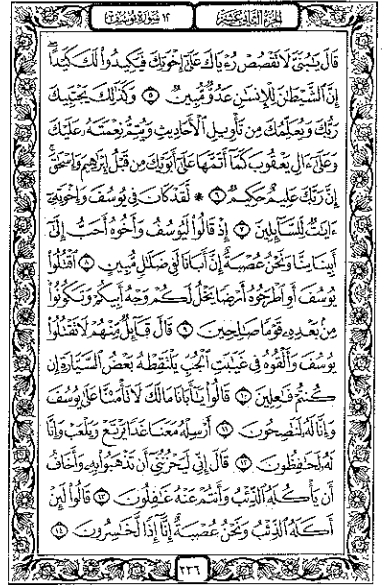 الجزء الثاني عشر ١٢ سورة يوسف
قَالَ يَٰبُنَىَّ لَا تَقْصُصْ رُءْيَاكَ عَلَىٰٓ إِخْوَتِكَ فَيَكِيدُوا۟ لَكَ كَيْدًا ۖ
إِنَّ ٱلشَّيْطَٰنَ لِلْإِنسَٰنِ عَدُوٌّ مُّبِينٌ ٥ وَكَذَٰلِكَ يَجْتَبِيكَ
رَبُّكَ وَيُعَلِّمُكَ مِن تَأْوِيلِ ٱلْأَحَادِيثِ وَيُتِمُّ نِعْمَتَهُۥ عَلَيْكَ
وَعَلَىٰٓ ءَالِ يَعْقُوبَ كَمَآ أَتَمَّهَا عَلَىٰٓ أَبَوَيْكَ مِن قَبْلُ إِبْرَٰهِيمَ وَإِسْحَٰقَ ۚ
إِنَّ رَبَّكَ عَلِيمٌ حَكِيمٌ ٦ * لَّقَدْ كَانَ فِى يُوسُفَ وَإِخْوَتِهِۦٓ
ءَايَٰتٌ لِّلسَّآئِلِينَ ٧ إِذْ قَالُوا۟ لَيُوسُفُ وَأَخُوهُ أَحَبُّ إِلَىٰٓ
أَبِينَا مِنَّا وَنَحْنُ عُصْبَةٌ إِنَّ أَبَانَا لَفِى ضَلَٰلٍ مُّبِينٍ ٨ ٱقْتُلُوا۟
يُوسُفَ أَوِ ٱطْرَحُوهُ أَرْضًا يَخْلُ لَكُمْ وَجْهُ أَبِيكُمْ وَتَكُونُوا۟
مِنۢ بَعْدِهِۦ قَوْمًا صَٰلِحِينَ ٩ قَالَ قَآئِلٌ مِّنْهُمْ لَا تَقْتُلُوا۟
يُوسُفَ وَأَلْقُوهُ فِى غَيَٰبَتِ ٱلْجُبِّ يَلْتَقِطْهُ بَعْضُ ٱلسَّيَّارَةِ إِن
كُنتُمْ فَٰعِلِينَ ١٠ قَالُوا۟ يَٰٓأَبَانَا مَالَكَ لَا تَأْمَ۫نَّا عَلَىٰ يُوسُفَ
وَإِنَّا لَهُۥ لَنَٰصِحُونَ ١١ أَرْسِلْهُ مَعَنَا غَدًا يَرْتَعْ وَيَلْعَبْ وَإِنَّا
لَهُۥ لَحَٰفِظُونَ ١٢ قَالَ إِنِّى لَيَحْزُنُنِىٓ أَن تَذْهَبُوا۟ بِهِۦ وَأَخَافُ
أَن يَأْكُلَهُ ٱلذِّئْبُ وَأَنتُمْ عَنْهُ غَٰفِلُونَ ١٣ قَالُوا۟ لَئِنْ
أَكَلَهُ ٱلذِّئْبُ وَنَحْنُ عُصْبَةٌ إِنَّآ إِذًا لَّخَٰسِرُونَ ١٤
٢٣٦